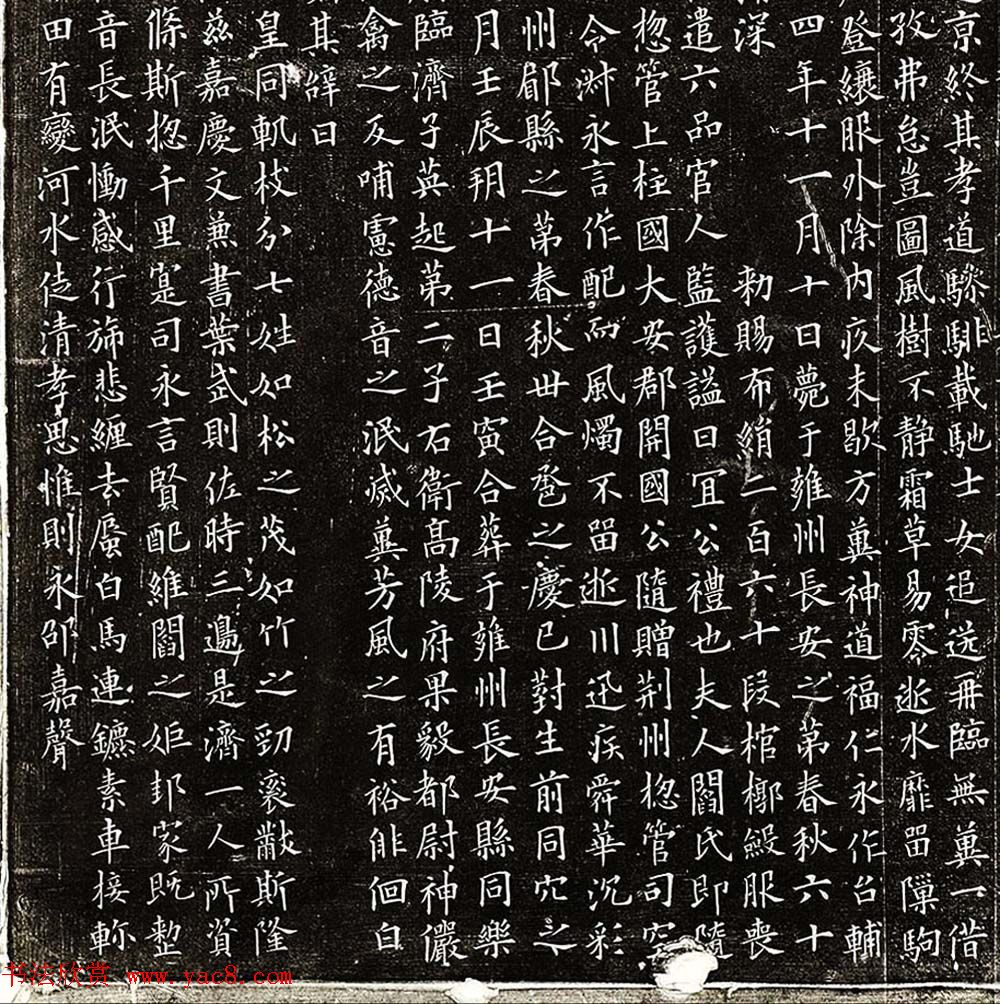 京終其孝道驂騑載馳士女追送再臨無冀一借
孜弗怠豈圖風樹不静霜草易零逝水靡留隟駒
登纕服外除内疚未歇方冀神道福仁永作台輔
四年十一月十日薨于雍州長安之第春秋六十
深 勑賜布絹二百六十段棺槨殿服喪
遣六品官人監護謚曰宜公禮也夫人閻氏即隨
揔管上柱國大安郡開國公隨贈荆州揔管司空
令淑永言作配而風燭不留逝川迅疾舜華沉彩
州郿縣之第春秋丗合卺之慶已對生前同穴之
月壬辰朔十一日壬寅合葬于雍州長安縣同樂
臨濟子英起第二子右衛高陵府果毅都尉神儼
禽之反哺憲德音之泯滅冀芳風之有裕俳佪白
其辭曰
皇同軌枝分七姓如松之茂如竹之勁衮黻斯隆
兹嘉慶文兼書葉武則佐時三邊是濟一人所資
條斯揔千里寔司永言賢配維閻之姬邦家既整
音長泯慟感行旆悲纏去蜃白馬連鑣素車接軫
田有變河水徒清孝思惟則永邵嘉聲
书法欣赏 www.yac8.com